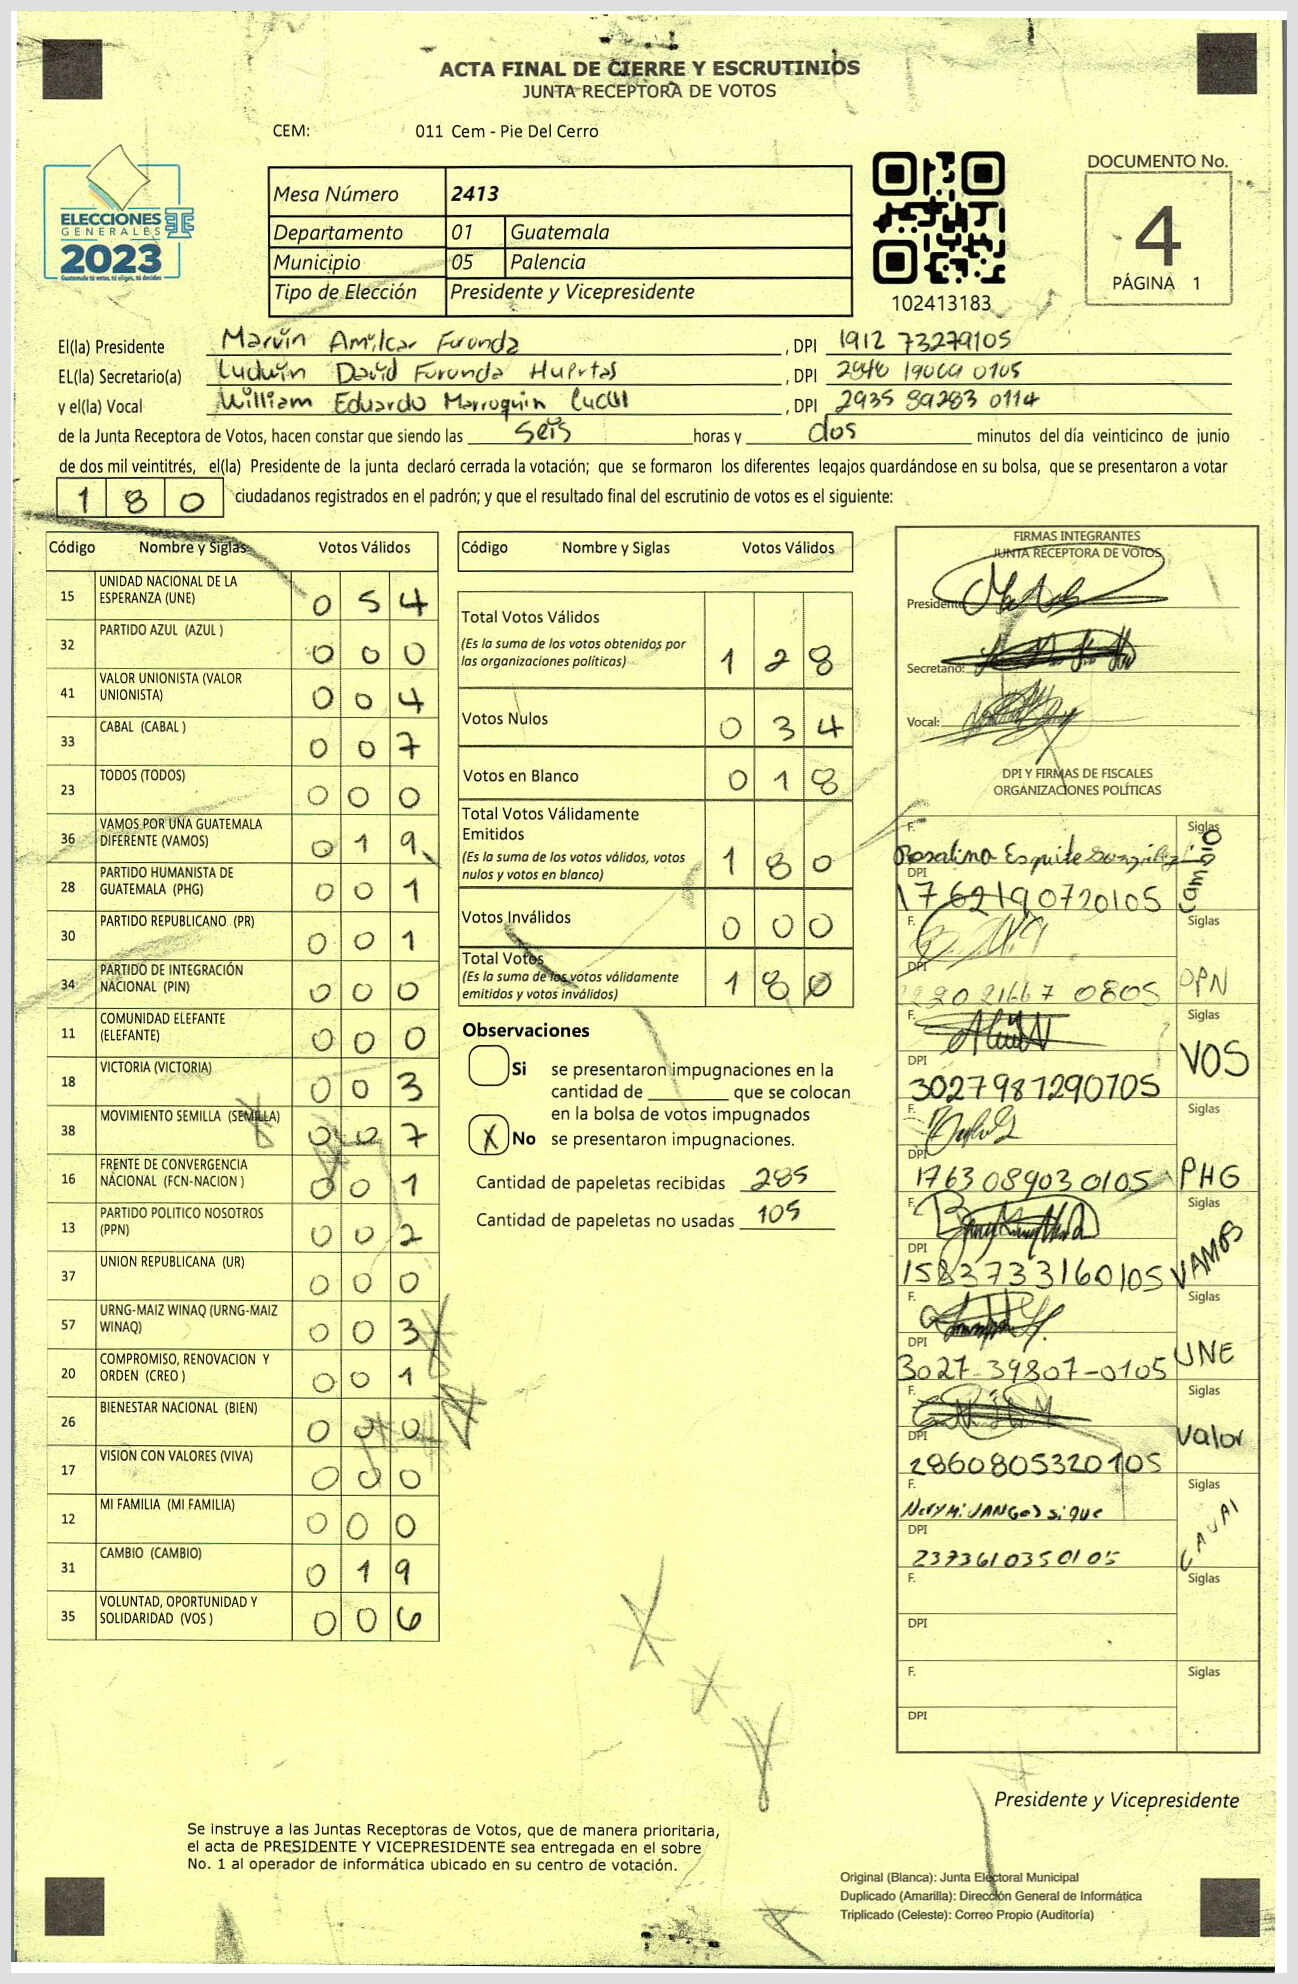 ACTA FINAL DE CIERRE Y ESCRUTINIOS
JUNTA RECEPTORA DE VOTOS
CEM: 011 Cem - Pie Del Cerro
ELECCIONES
GENERALES
2023
Guatemala tú votas, tú eliges, tú decides
Mesa Número 2413
Departamento 01 Guatemala
Municipio 05 Palencia
Tipo de Elección Presidente y Vicepresidente
102413183
DOCUMENTO No.
4
PÁGINA 1
El(la) Presidente Marvin Amilcar Furunda, DPI 1912 73279105
EL(la) Secretario(a) Luduvin David Furunda Huertas, DPI 2848 19069 0105
y el(la) Vocal William Eduardo Marroquin Cucul, DPI 2935 89283 0114
de la Junta Receptora de Votos, hacen constar que siendo las seis horas y dos minutos del día veinticinco de junio
de dos mil veintitrés, el(la) Presidente de la junta declaró cerrada la votación; que se formaron los diferentes legajos guardándose en su bolsa, que se presentaron a votar
180 ciudadanos registrados en el padrón; y que el resultado final del escrutinio de votos es el siguiente:
Código Nombre y Siglas Votos Válidos
15 UNIDAD NACIONAL DE LA ESPERANZA (UNE) 0 5 4
32 PARTIDO AZUL (AZUL ) 0 0 0
41 VALOR UNIONISTA (VALOR UNIONISTA) 0 0 4
33 CABAL (CABAL ) 0 0 7
23 TODOS (TODOS) 0 0 0
36 VAMOS POR UNA GUATEMALA DIFERENTE (VAMOS) 0 1 9
28 PARTIDO HUMANISTA DE GUATEMALA (PHG) 0 0 1
30 PARTIDO REPUBLICANO (PR) 0 0 1
34 PARTIDO DE INTEGRACIÓN NACIONAL (PIN) 0 0 0
11 COMUNIDAD ELEFANTE (ELEFANTE) 0 0 0
18 VICTORIA (VICTORIA) 0 0 3
38 MOVIMIENTO SEMILLA (SEMILLA) 0 0 7
16 FRENTE DE CONVERGENCIA NACIONAL (FCN-NACION ) 0 0 1
13 PARTIDO POLITICO NOSOTROS (PPN) 0 0 2
37 UNION REPUBLICANA (UR) 0 0 0
57 URNG-MAIZ WINAQ (URNG-MAIZ WINAQ) 0 0 3
20 COMPROMISO, RENOVACION Y ORDEN (CREO ) 0 0 1
26 BIENESTAR NACIONAL (BIEN) 0 0 0
17 VISION CON VALORES (VIVA) 0 0 0
12 MI FAMILIA (MI FAMILIA) 0 0 0
31 CAMBIO (CAMBIO) 0 1 9
35 VOLUNTAD, OPORTUNIDAD Y SOLIDARIDAD (VOS ) 0 0 6
Código Nombre y Siglas Votos Válidos
Total Votos Válidos 1 2 8
(Es la suma de los votos obtenidos por
las organizaciones políticas)
Votos Nulos 0 3 4
Votos en Blanco 0 1 8
Total Votos Válidamente
Emitidos 1 8 0
(Es la suma de los votos válidos, votos
nulos y votos en blanco)
Votos Inválidos 0 0 0
Total Votos 1 8 0
(Es la suma de los votos válidamente
emitidos y votos inválidos)
Observaciones
Si se presentaron impugnaciones en la
cantidad de ________ que se colocan
en la bolsa de votos impugnados
X No se presentaron impugnaciones.
Cantidad de papeletas recibidas 285
Cantidad de papeletas no usadas 105
FIRMAS INTEGRANTES
JUNTA RECEPTORA DE VOTOS
Presidente
Secretario:
Vocal:
DPI Y FIRMAS DE FISCALES
ORGANIZACIONES POLÍTICAS
F. Rosalina Esquite Siglas Cambio
DPI 1762190720105
F. Siglas PPN
DPI 0805
F. Siglas VOS
DPI 3027981290105
F. Siglas PHG
DPI 1763 08903 0105
F. Siglas VAMOS
DPI 1583733160105
F. Siglas UNE
DPI 3027-39807-0105
F. Siglas Valor
DPI 2860805320105
F. Siglas
DPI 2373610350105
F. Siglas
DPI
F. Siglas
DPI
Presidente y Vicepresidente
Se instruye a las Juntas Receptoras de Votos, que de manera prioritaria,
el acta de PRESIDENTE Y VICEPRESIDENTE sea entregada en el sobre
No. 1 al operador de informática ubicado en su centro de votación.
Original (Blanca): Junta Electoral Municipal
Duplicado (Amarilla): Dirección General de Informática
Triplicado (Celeste): Correo Propio (Auditoría)